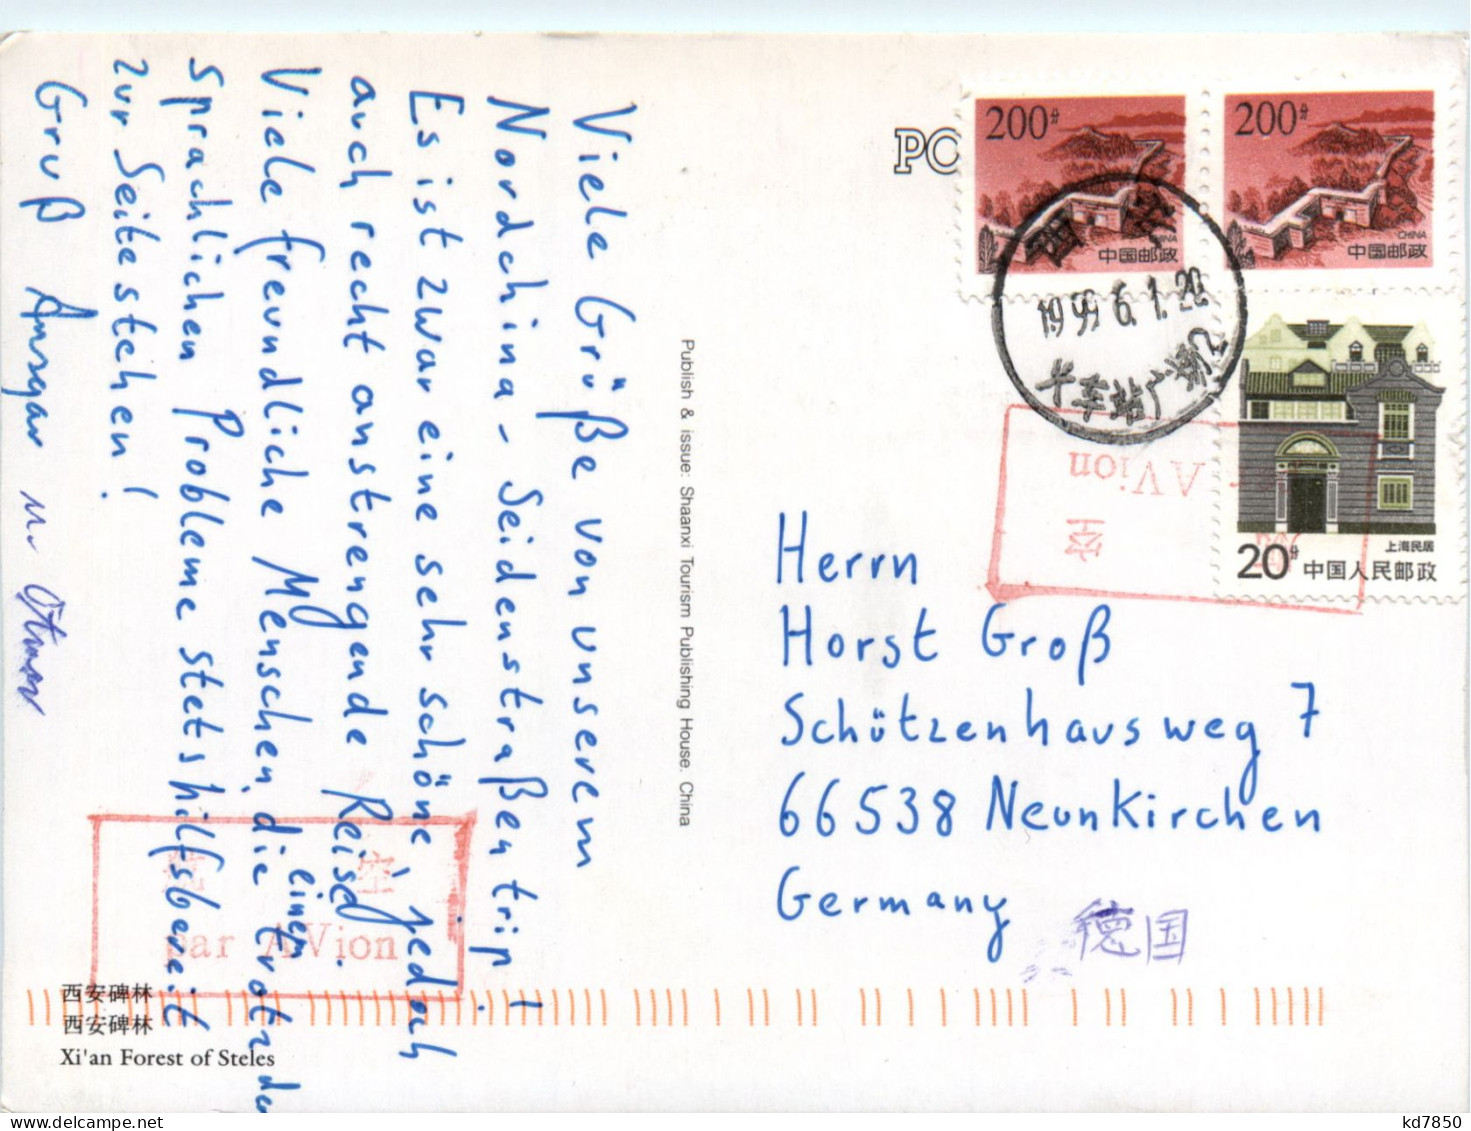 Viele Grüße von unserem
Nordchina - Seidenstraßentrip!
Es ist zwar eine sehr schöne, jedoch
auch recht anstrengende Reise.
Viele freundliche Menschen, die trotz der
sprachlichen Probleme stets hilfsbereit
einem
zur Seite stehen!
Gruß Ansgar u.
Publish & issue: Shaanxi Tourism Publishing House. China
PO
200分
CHINA
中国邮政
200分
CHINA
中国邮政
西安
1999.6.1.20
火车站广场2
上海民居
20分 中国人民邮政
AVion
空
Herrn
Horst Groß
Schützenhausweg 7
66538 Neunkirchen
Germany
德国
航 空
par AVion
西安碑林
西安碑林
Xi'an Forest of Steles
kd7850